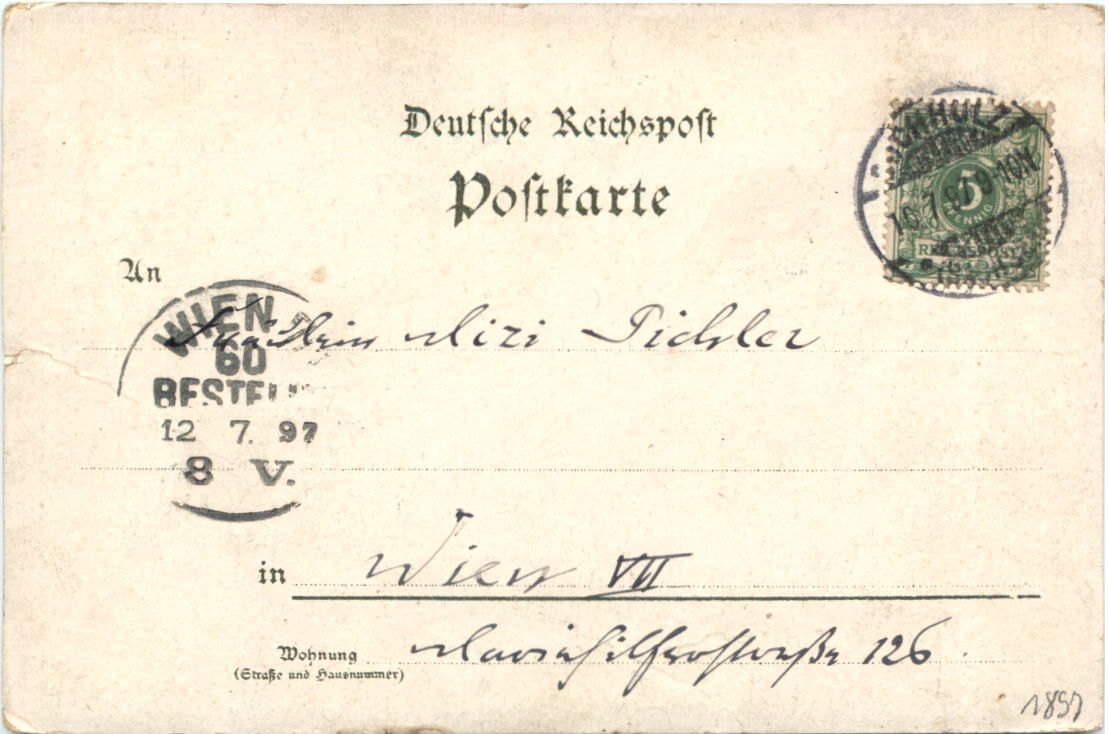 Deutsche Reichspost
Postkarte
5
PFENNIG
REICHSPOST
An
Fräulein Mizi Pichler
WIEN
60
BESTELLT
12 7. 97
8 V.
in Wien VII
Wohnung Mariahilferstraße 126
(Straße und Hausnummer)
1897